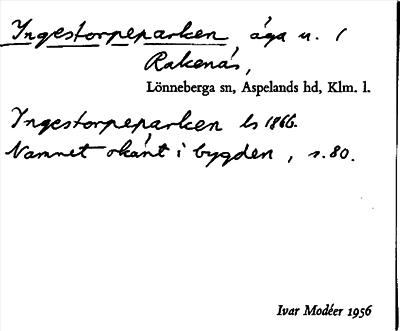 Yngestorpeparken äga u. /
Rakenäs,
Lönneberga sn, Aspelands hd, Klm. l.
Yngestorpeparken ls 1866.
Namnet okänt i bygden, s. 80.
Ivar Modéer 1956